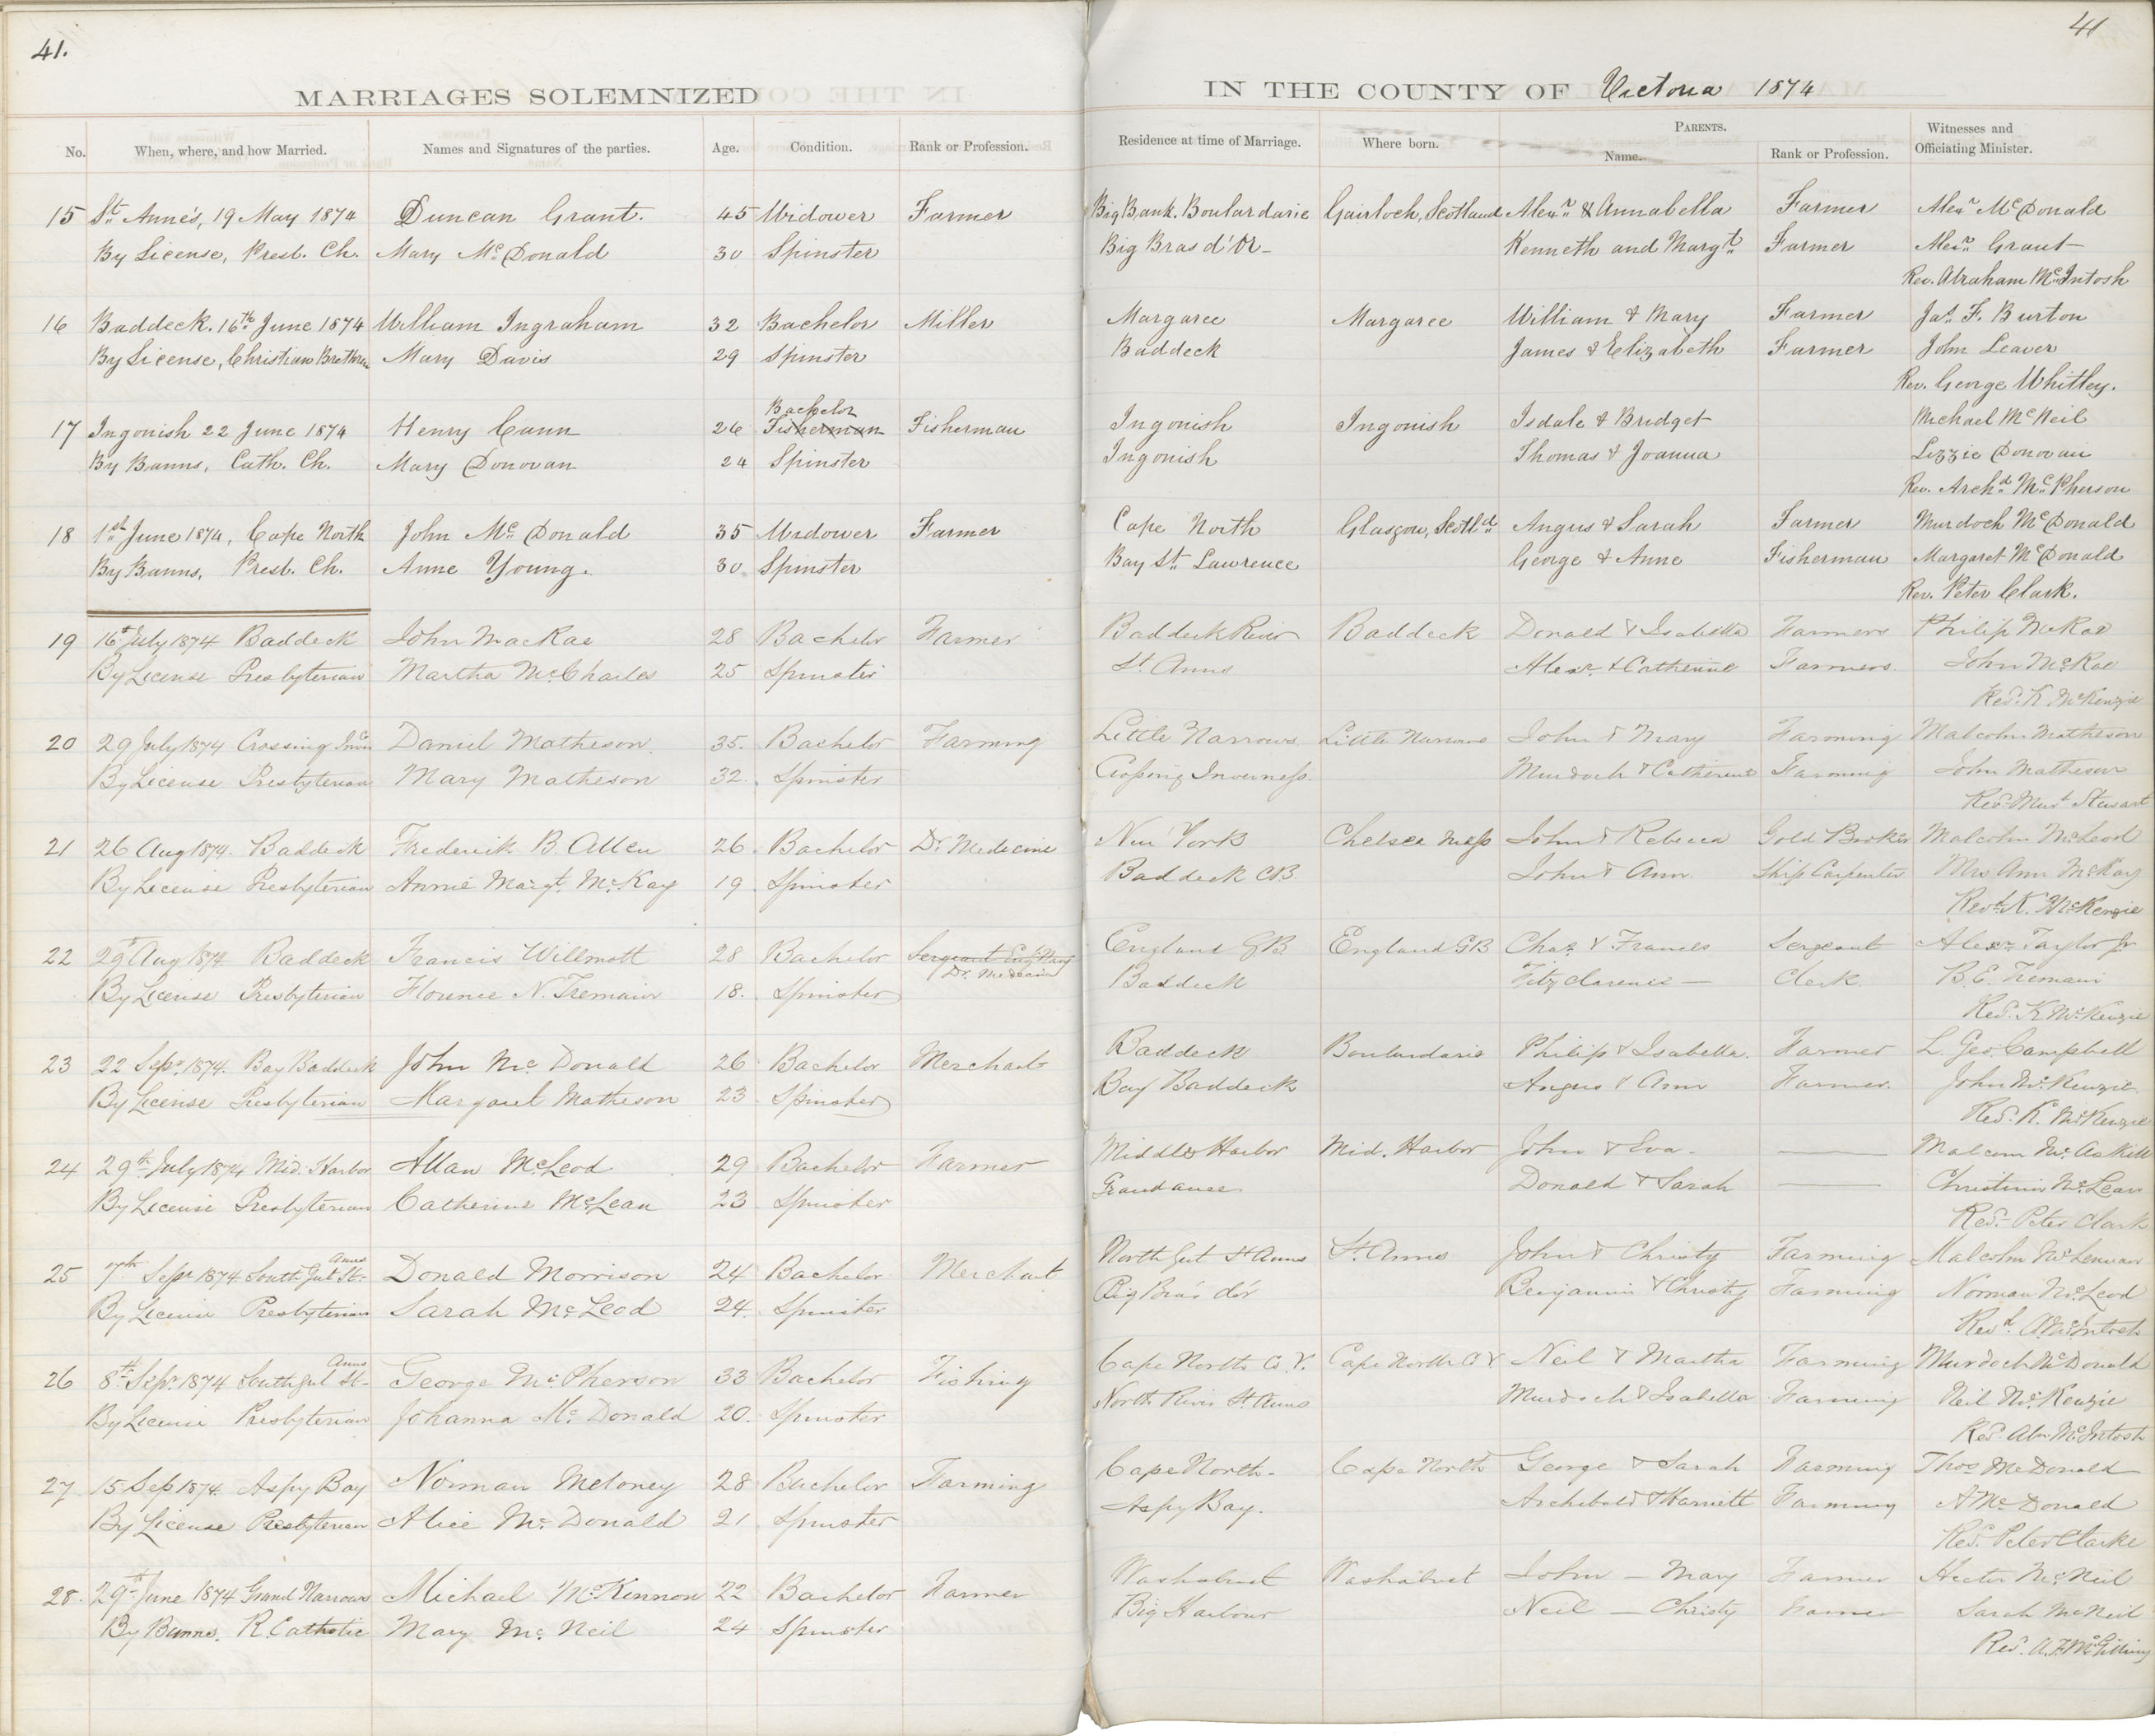 41.
41
MARRIAGES SOLEMNIZED IN THE COUNTY OF Victoria 1874
No. When, where, and how Married. Names and Signatures of the parties. Age. Condition. Rank or Profession. Residence at time of Marriage. Where born. PARENTS. Name. Rank or Profession. Witnesses and Officiating Minister.
15 St. Anne's, 19 May 1874 Duncan Grant. 45 Widower Farmer Big Bank. Boulardarie Gairloch, Scotland Alexr. & Annabella Farmer Alexr. McDonald
By License, Presb. Ch. Mary McDonald 30 Spinster Big Bras d'Or Kenneth and Margt. Farmer Alexr. Grant
Rev. Abraham McIntosh
16 Baddeck. 16th June 1874 William Ingraham 32 Bachelor Miller Margaree Margaree William & Mary Farmer Jas. F. Burton
By License, Christian Brethren Mary Davis 29 Spinster Baddeck James & Elizabeth Farmer John Leaver
Rev. George Whitley.
Bachelor
17 Ingonish 22 June 1874 Henry Cann 26 Fisherman Fisherman Ingonish Ingonish Isdale & Bridget Michael McNeil
By Banns, Cath. Ch. Mary Donovan 24 Spinster Ingonish Thomas & Joanna Lizzie Donovan
Rev. Archd. McPherson
18 1st June 1874, Cape North John McDonald 35 Widower Farmer Cape North Glasgow, Scotld. Angus & Sarah Farmer Murdoch McDonald
By Banns, Presb. Ch. Anne Young. 30 Spinster Bay St. Lawrence George & Anne Fisherman Margaret McDonald
Rev. Peter Clark.
19 16th July 1874 Baddeck John MacRae 28 Bachelor Farmer Baddeck River Baddeck Donald & Isabella Farmers Philip McRae
By License Presbyterian Martha McCharles 25 Spinster St. Anns Alexr. & Catherine Farmers John McRae
Revd. K McKenzie
20 29 July 1874 Crossing Invss Co Daniel Matheson. 35. Bachelor Farming Little Narrows Little Narrows John & Mary Farming Malcolm Matheson
By License Presbyterian Mary Matheson 32. Spinster Crossing Inverness Murdoch & Catherine Farming John Matheson
Revd. Murt. Stewart
21 26 Aug 1874. Baddeck Frederick B. Allen 26 Bachelor Dr. Medecine New York Chelsea Mass John & Rebecca Gold Broker Malcolm McLeod
By License Presbyterian Annie Margt. McKay 19 Spinster Baddeck CB. John & Ann Ship Carpenter Mrs Ann McKay
Revd. K. McKenzie
22 29th Aug 1874 Baddeck Francis Willmott 28 Bachelor Sergeant Eng Navy England GB England GB Chas. & Frances Sergeant Alexr Taylor Jr
Dr. Medecine
By License Presbyterian Florence N. Tremain 18. Spinster Baddeck Fitzclarence — Clerk B. E. Tremain
Revd. K McKenzie
23 22 Sepr. 1874. Bay Baddeck John McDonald 26 Bachelor Merchant Baddeck Boulardarie Philip & Isabella. Farmer L. Geo. Campbell
By License Presbyterian Margaret Matheson 23 Spinster Bay Baddeck Angus & Ann Farmer. John McKenzie
Revd. K. McKenzie
24 29th July 1874 Mid. Harbor Allan McLeod 29 Bachelor Farmer Middle Harbor Mid. Harbor John & Eva — Malcom McAskill
By License Presbyterian Catherine McLean 23 Spinster Grandance Donald & Sarah — Christina McLean
Revd. Peter Clark
Anns
25 7th Sepr 1874 South Gut St. Donald Morrison 24 Bachelor Merchant North Gut St Anns St. Anns John & Christy Farming Malcolm McLennan
By License Presbyterian Sarah McLeod 24. Spinster Big Bras d'or Benjamin & Christy Farming Norman McLeod
Revd. A. McIntosh
Anns
26 8th Sepr. 1874 South Gut St. George McPherson 33 Bachelor Fishing Cape North Co V. Cape North C V Neil & Martha Farming Murdoch McDonald
By License Presbyterian Johanna McDonald 20. Spinster North River St. Anns Murdoch & Isabella Farming Neil McKenzie
Revd Abm. McIntosh
27 15 Sep 1874 Aspy Bay Norman Meloney 28 Bachelor Farming Cape North. Cape North George & Sarah Farming Thos McDonald
By License Presbyterian Alice McDonald 21 Spinster Aspy Bay. Archibald & Harriett Farming A McDonald
Revd. Peter Clarke
28. 29th June 1874 Grand Narrows Michael McKinnon 22 Bachelor Farmer Washabuct Washabuct John — Mary Farmer Hector McNeil
By Banns. R. Catholic Mary McNeil 24 Spinster Big Harbour Neil — Christy Farmer Sarah McNeil
Revd. A. F. McGillivray